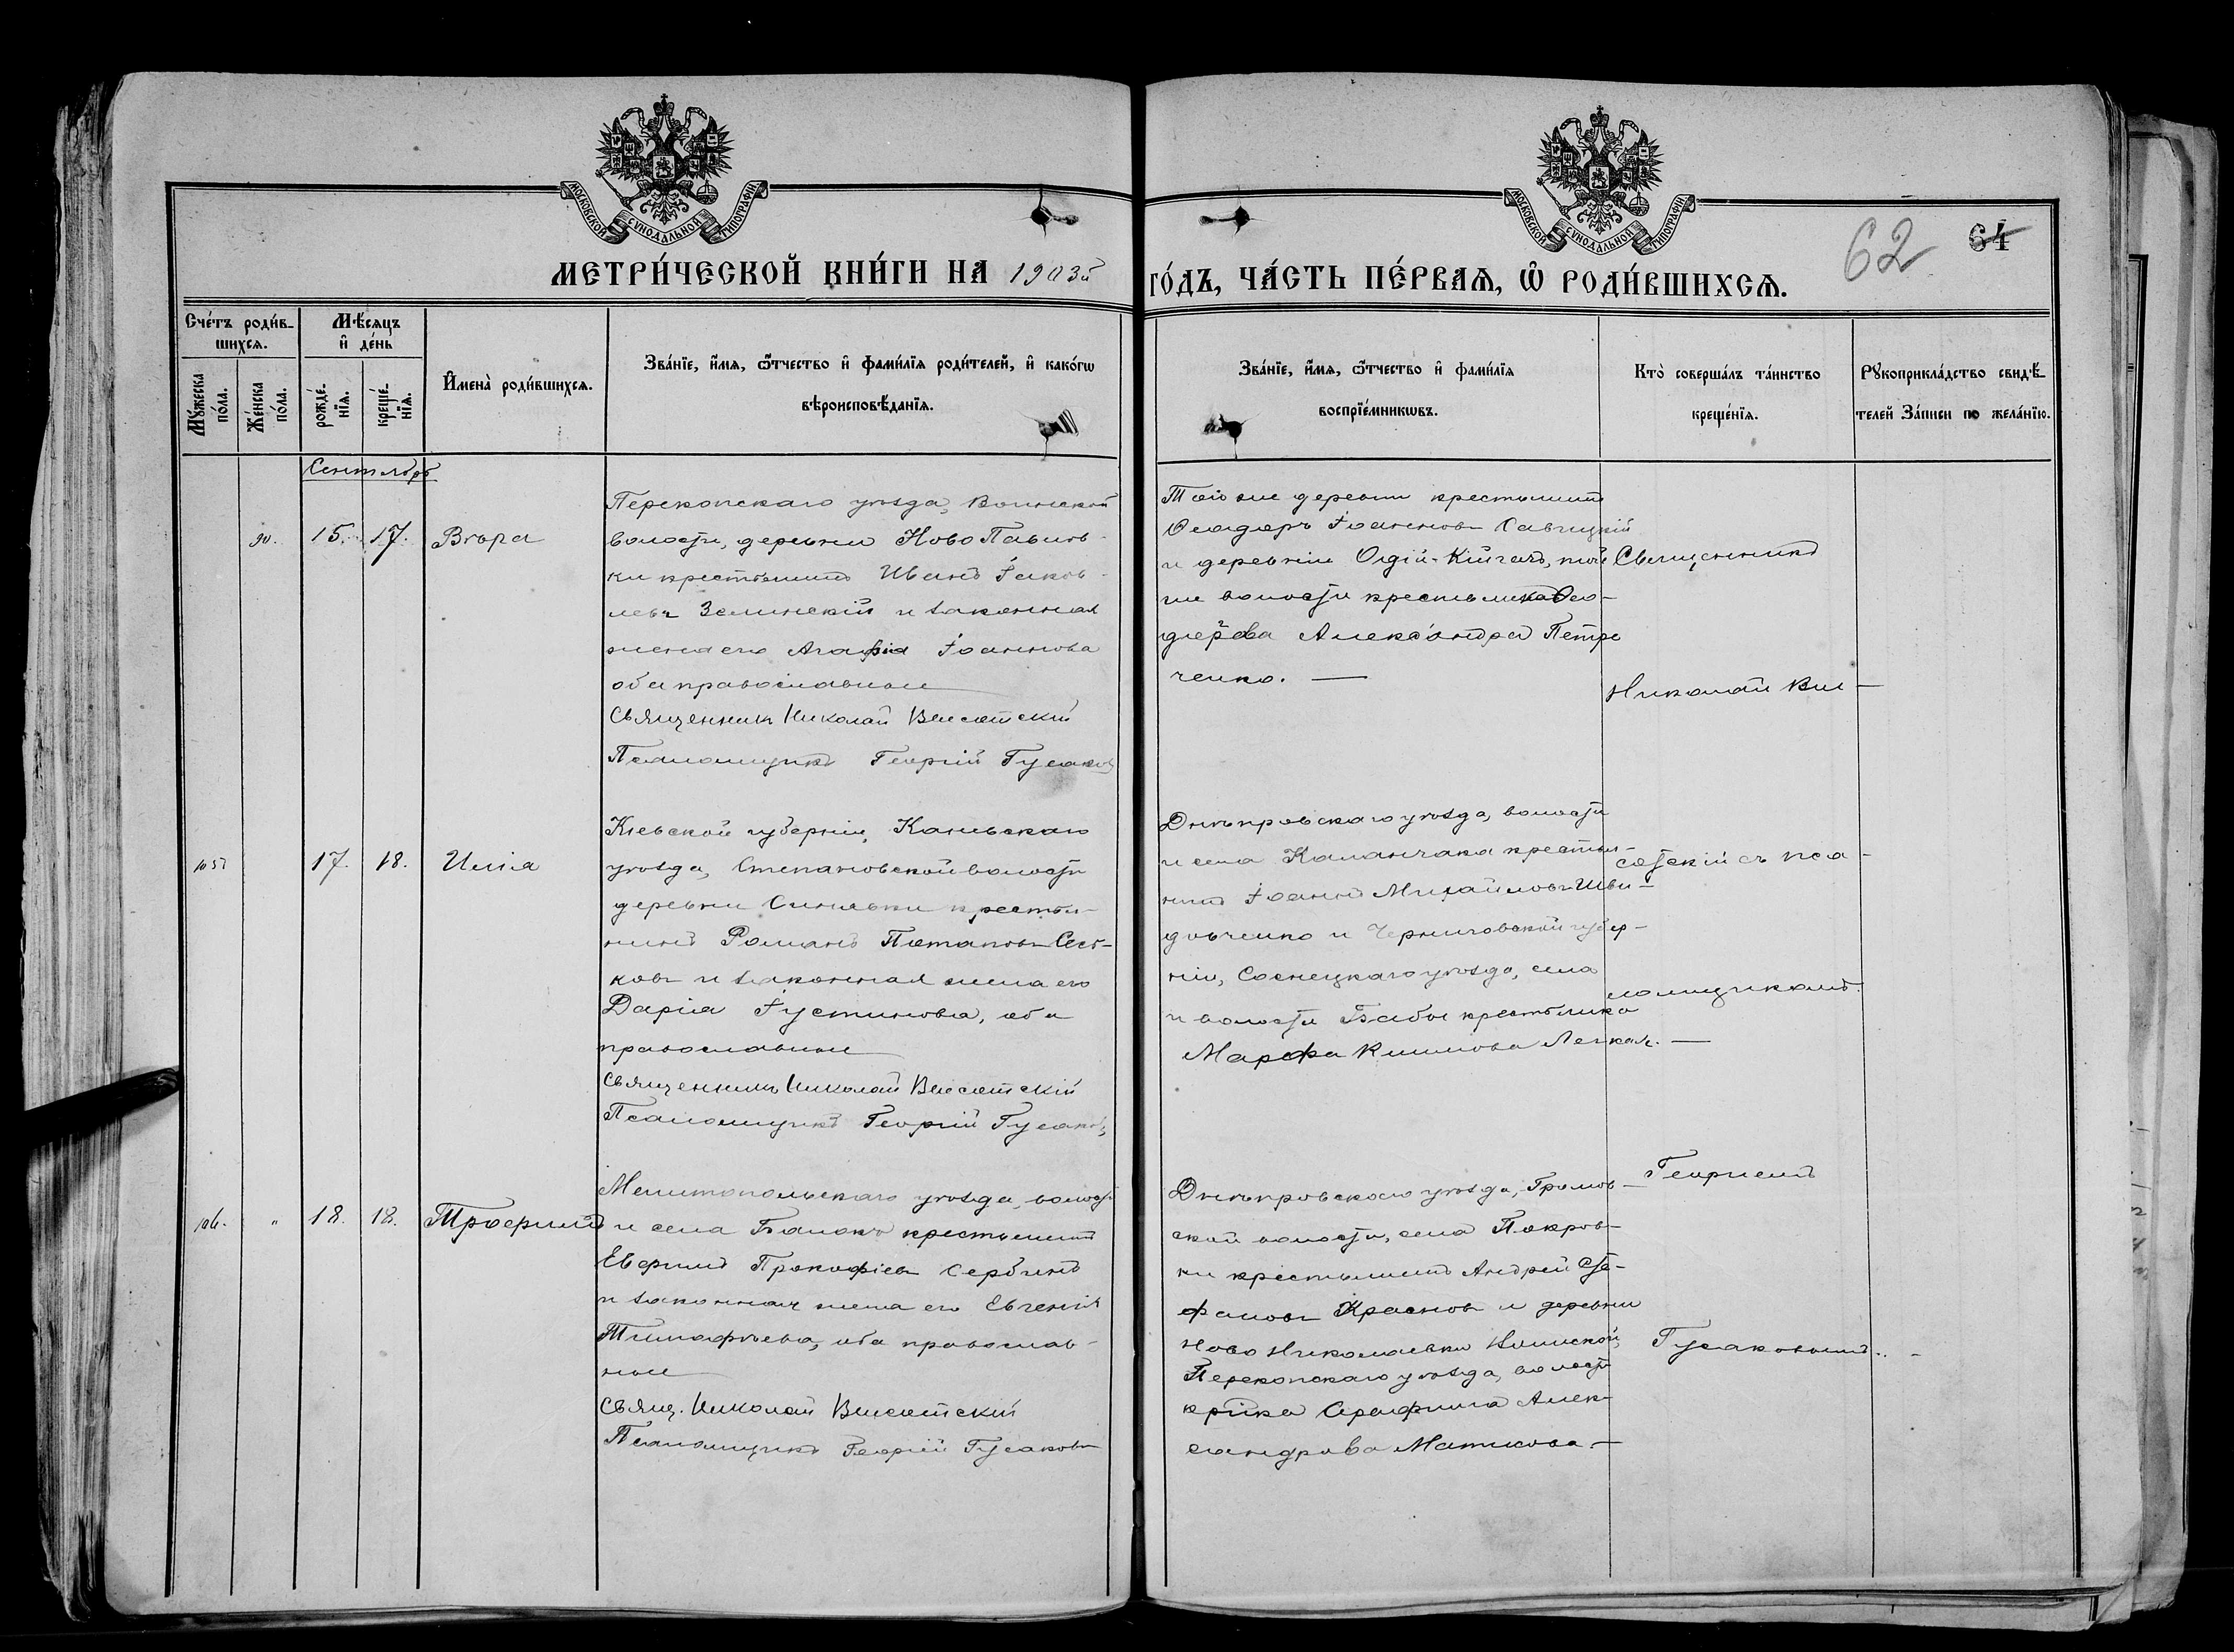 МОСКОВСКОЙ СѴНОДАЛЬНОЙ ТИПОГРАФІИ
МОСКОВСКОЙ СѴНОДАЛЬНОЙ ТИПОГРАФІИ
62 64
МЕТРИ́ЧЕСКОЙ КНИ́ГИ НА 1903й ГО́ДЪ, ЧА́СТЬ ПЕ́РВАѦ, Ѡ҆ РОДИ́ВШИХСѦ.
Сче́тъ роди́в-
шихсѧ.
Мꙋ́жеска по́ла.
Же́нска по́ла.
Мѣ́сѧцъ
и҆ де́нь
рожде́-нїѧ.
креще́-нїѧ.
И҆мена̀ роди́вшихсѧ.
Зва́нїе, и҆́мѧ, ѻ҆́тчество и҆ фами́лїѧ роди́телей, и҆ како́гѡ
вѣроисповѣ́данїѧ.
Зва́нїе, и҆́мѧ, ѻ҆́тчество и҆ фами́лїѧ
воспрїе́мникѡвъ.
Кто̀ соверша́лъ та́инство
креще́нїѧ.
Рꙋкоприкла́дство свидѣ́-
телей За́писи по жела́нїю.
Сентябрь
90. 15. 17. Вѣра
Перекопскаго уѣзда, Воинской
волости, деревни Ново Павлов-
ки крестьянинъ Иванъ Іаков-
левъ Зелинскій и законная
жена его Агафія Іоаннова
оба православные
Священникъ Николай Высотскій
Псаломщикъ Георгій Гусаковъ
Той же деревни крестьянинъ
Ѳеодоръ Іоанновъ Савицкій
и деревни той
же волости крестьянка Ѳео-
дорова Александра Петре
ченко. —
105 17. 18. Илія
Кіевской губерніи, Каневскаго
уѣзда, Степановской волости
деревни Синявки крестья-
нинъ Романъ Потаповъ
ковъ и законная жена его
Дарія Іустинова, оба
православные
Священникъ Николай Высотскій
Псаломщикъ Георгій Гусаковъ
Днѣпровскаго уѣзда, волости
и села Каланчака крестья-
нинъ Іоаннъ Михайловъ Шви-
дченко и Черниговской губер-
ніи, Сосницкаго уѣзда, села
и волости Бабы крестьянка
Марфа Климова Легкая. —
106. " 18. 18. Трофимъ
Мелитопольскаго уѣзда, волости
и села Балокъ крестьянинъ
Евфимъ Прокофіевъ Сербинъ
и законная жена его Евгенія
Тимофѣева, оба православ-
ные
Свящ. Николай Высотскій
Псаломщикъ Георгій Гусаковъ
Днѣпровскаго уѣзда, Громов-
ской волости, села Покров-
ки крестьянинъ Андрей Сте-
фановъ Красновъ и деревни
Ново Николаевки Воинской,
Перекопскаго уѣзда, волости
кр-нка Серафима Алек-
сандрова Матисова. —
Священникъ
Николай Вы-
сотскій съ пса-
ломщикомъ
Георгіемъ
Гусаковымъ. -